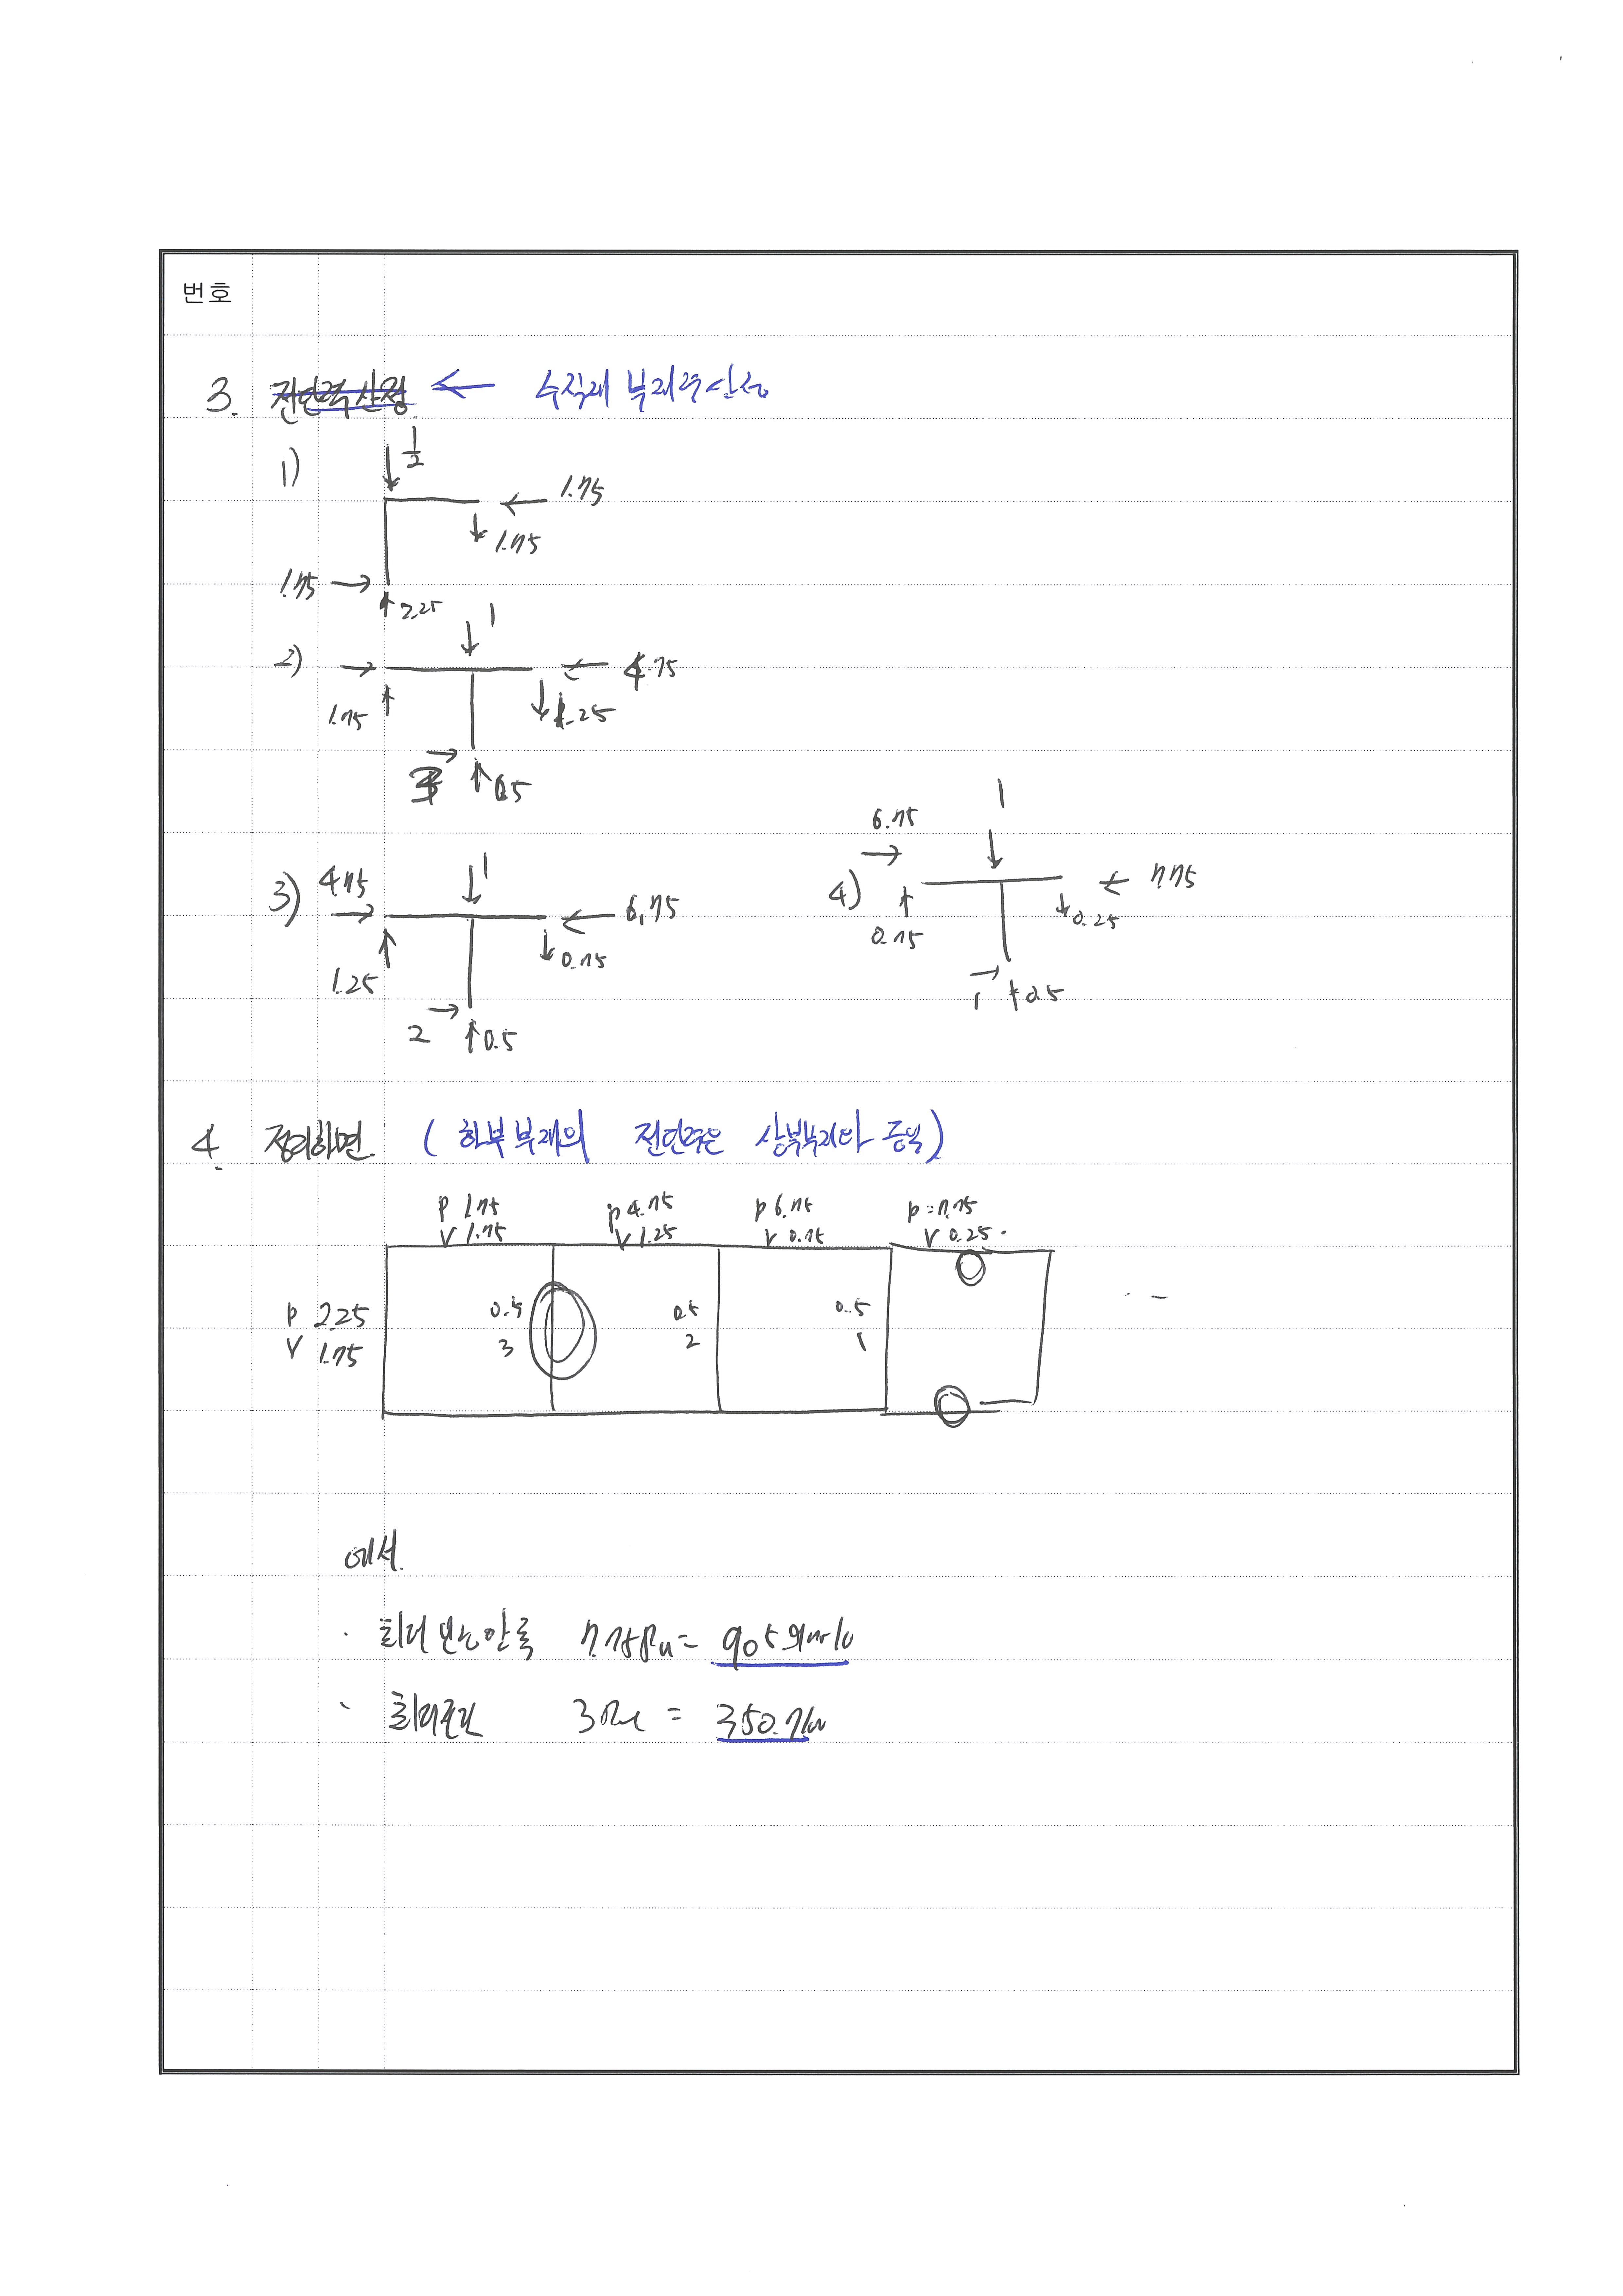 번호
3. 전단력 산정 ← 수직재 부재력 산정
1) 1/2
1.75
1.75
1.75
2.25
2) 1
4.75
1.75
1.25
3 0.5
3) 4.75 1
6.75
1.25
0.75
2 0.5
4) 6.75 1
7.75
0.75
0.25
1 0.5
4. 정리하면. (하부 부재의 전단력은 상부부재와 동일)
P 1.75 P 4.75 P 6.75 P = 7.75
V 1.75 V 1.25 V 0.75 V 0.25
P 2.25 0.5 0.5 0.5
V 1.75 3 2 1
에서.
· 최대 7.75Pu =
· 최대전단 3Pu = 350.7kN